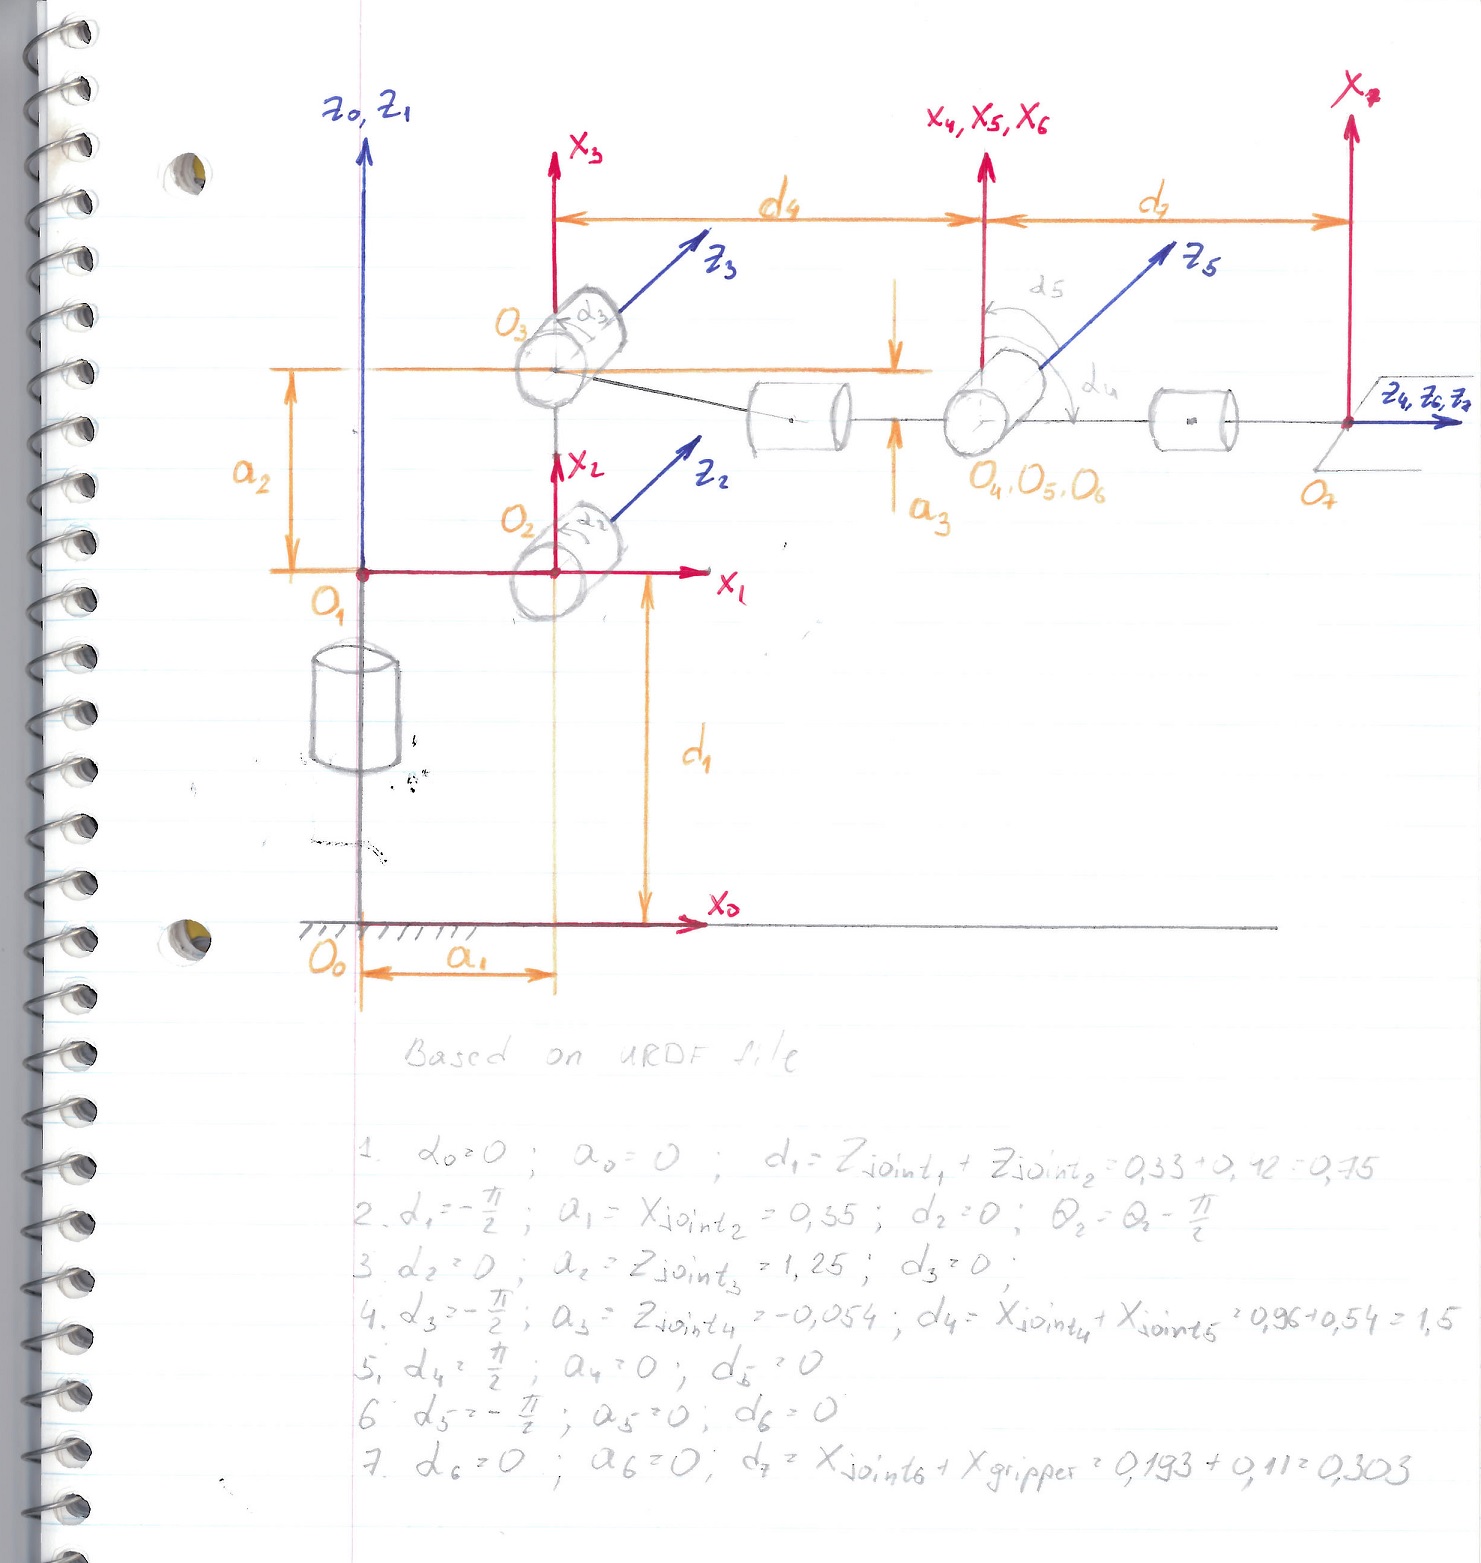 Z₀, Z₁
X₃
X₄, X₅, X₆
X₇
d₄
d₇
Z₃
Z₅
α₅
O₃
α₃
α₄
Z₄, Z₆, Z₇
a₂
X₂
Z₂
O₄, O₅, O₆
O₇
a₃
O₂
α₂
X₁
O₁
d₁
X₀
O₀
a₁
Based on URDF file
1. α₀=0 ; a₀=0 ; d₁= Zjoint₁ + Zjoint₂ = 0,33+0,42=0,75
2. α₁=-π/2 ; a₁= Xjoint₂ = 0,35 ; d₂=0 ; Θ₂=Θ₂-π/2
3 α₂=0 ; a₂= Zjoint₃ = 1,25 ; d₃=0 ;
4. α₃=-π/2 ; a₃= Zjoint₄ = -0,054 ; d₄= Xjoint₄ + Xjoint₅ = 0,96+0,54=1,5
5, α₄=π/2 ; a₄=0 ; d₅=0
6 α₅=-π/2 ; a₅=0 ; d₆=0
7. α₆=0 ; a₆=0 ; d₇= Xjoint₆ + Xgripper = 0,193+0,11=0,303